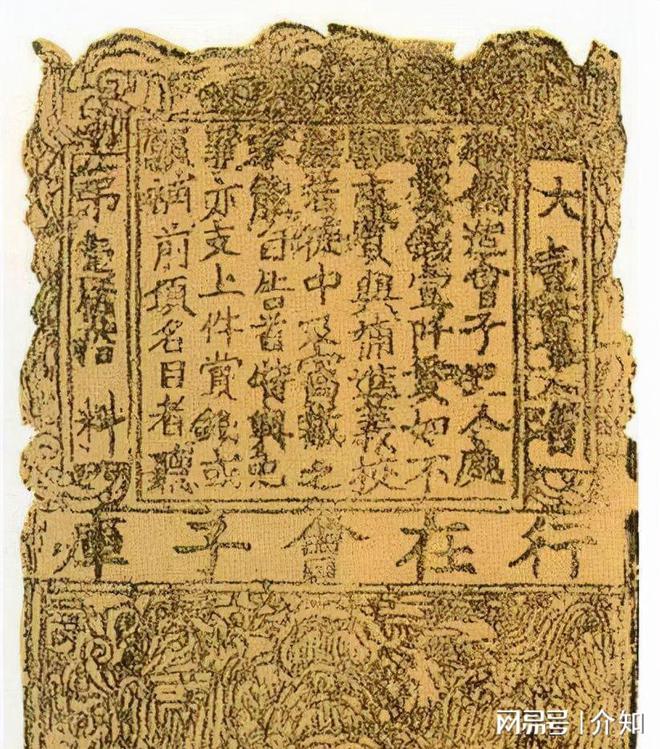 大壹貫文省
敕偽造會子犯人處
斬賞錢壹阡貫如不
願支賞與補進義校
尉若徒中及窩藏之
家能自告首特與免
罪亦支上件賞錢或
願補前項名目者聽
第壹佰拾料
行在會子庫
网易号 | 介知